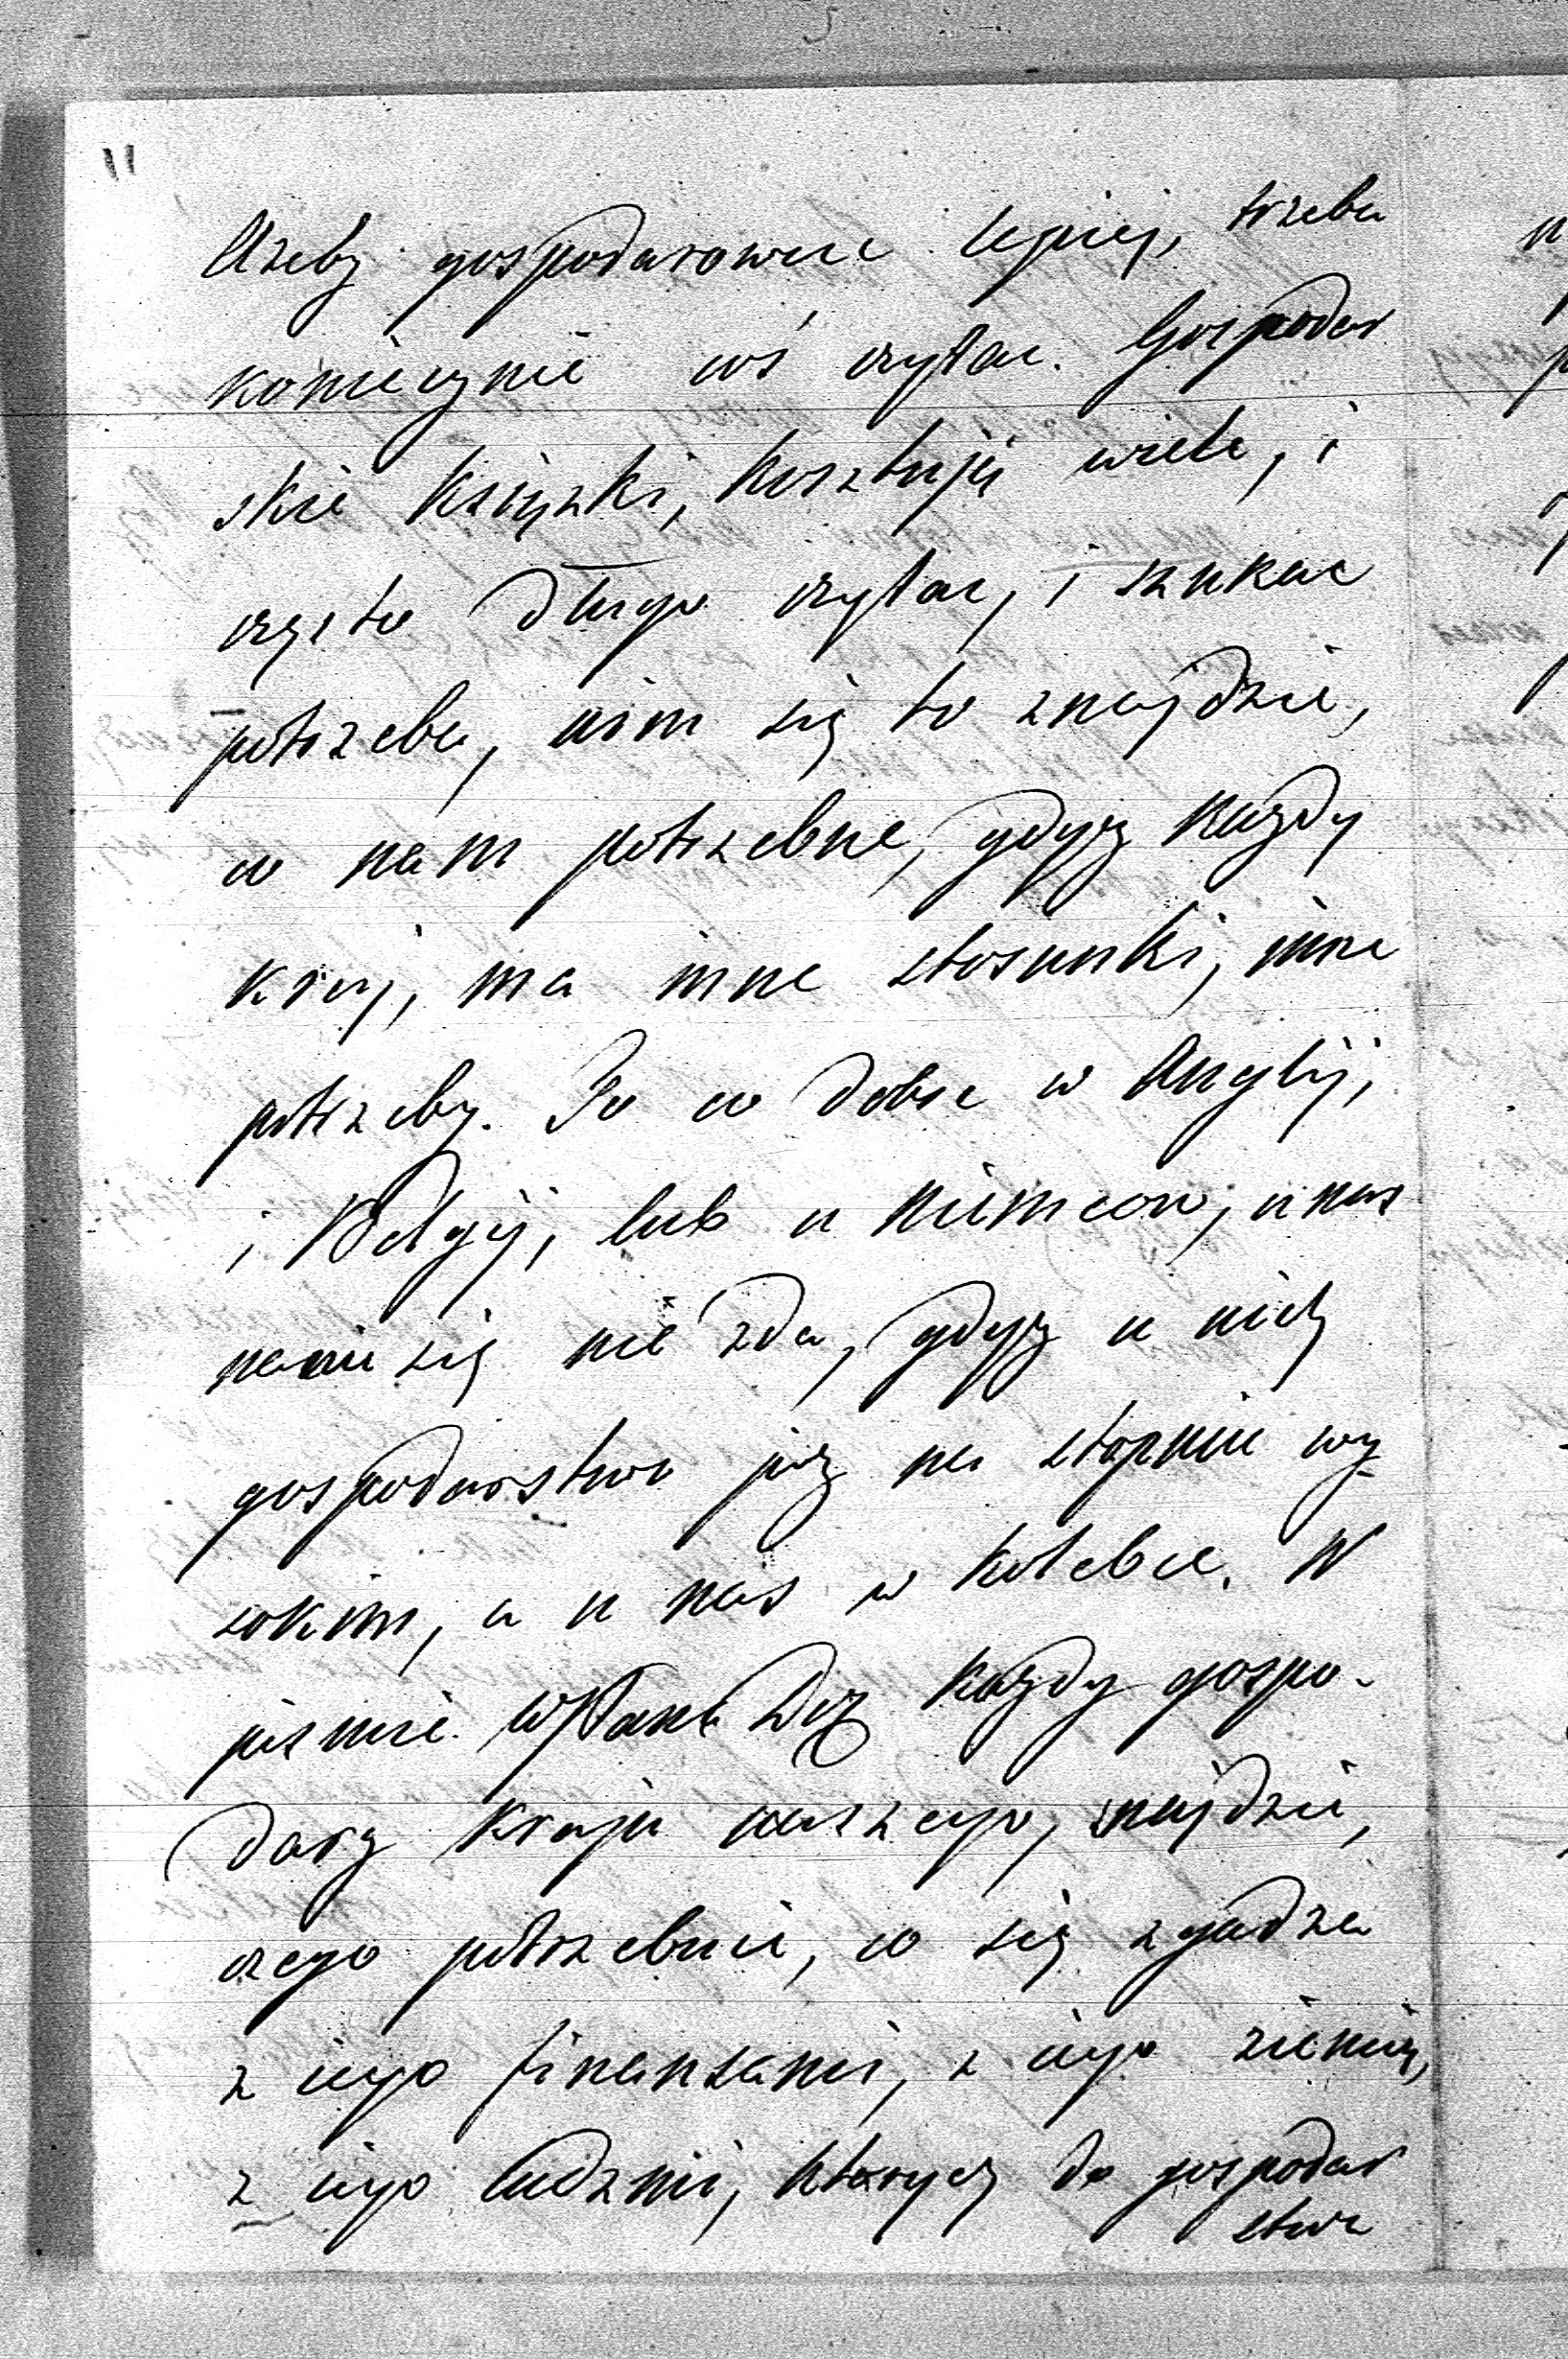 11
Ażeby gospodarowac lepiej, trzeba
koniecznie coś czytac. Gospodar
skie książki, kosztują wiele, i
często długo czytac, i szukac
potrzeba, nim się to znajdzie,
co nam potrzebne, gdyż każdy
kraj, ma inne stosunki, inne
potrzeby. To co dobre w Anglij,
i Belgij, lub u niemcow, u nas
na nic się nie zda, gdyż u nich
gospodarstwo już na stopniu wy-
sokim, a u nas w kolebce. W
pismie każdy gospo-
darz kraju naszego, znajdzie,
czego potrzebuie, co się zgadza
z iego finansami, z iego ziemią,
z iego ludzmi, ktorych do gospodar
stwa